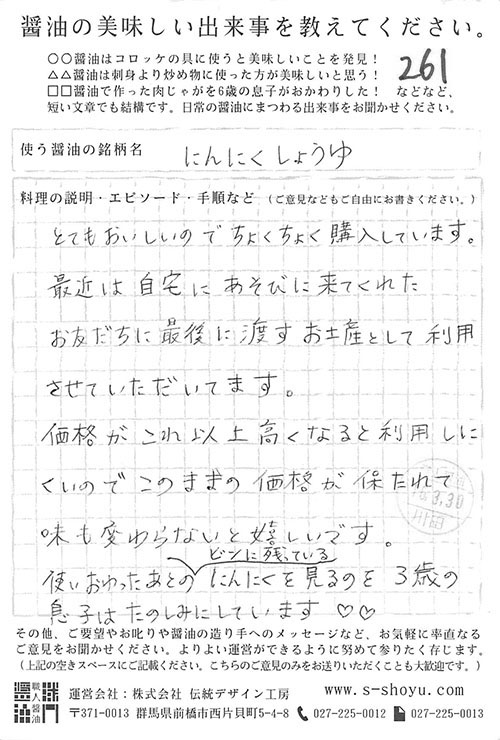 醤油の美味しい出来事を教えてください。
○○醤油はコロッケの具に使うと美味しいことを発見！
△△醤油は刺身より炒め物に使った方が美味しいと思う！
□□醤油で作った肉じゃがを6歳の息子がおかわりした！ などなど、
短い文章でも結構です。日常の醤油にまつわる出来事をお聞かせください。
261
使う醤油の銘柄名
にんにくしょうゆ
料理の説明・エピソード・手順など （ご意見などもご自由にお書きください。）
とてもおいしいのでちょくちょく購入しています。
最近は自宅にあそびに来てくれた
お友だちに最後に渡すお土産として利用
させていただいてます。
価格がこれ以上高くなると利用しに
くいのでこのままの価格が保たれて
味も変わらないと嬉しいです。
ビンに残っている
使いおわったあとのにんにくを見るのを3歳の
息子はたのしみにしています♡♡
3.30
その他、ご要望やお叱りや醤油の造り手へのメッセージなど、お気軽に率直なる
ご意見をお聞かせください。よりよい運営ができるように努めて参りたく存じます。
（上記の空きスペースにご記載ください。こちらのご意見のみをお送りいただくことも大歓迎です。）
職人醤油
運営会社：株式会社 伝統デザイン工房 www.s-shoyu.com
〒371-0013 群馬県前橋市西片貝町5-4-8 027-225-0012 027-225-0013